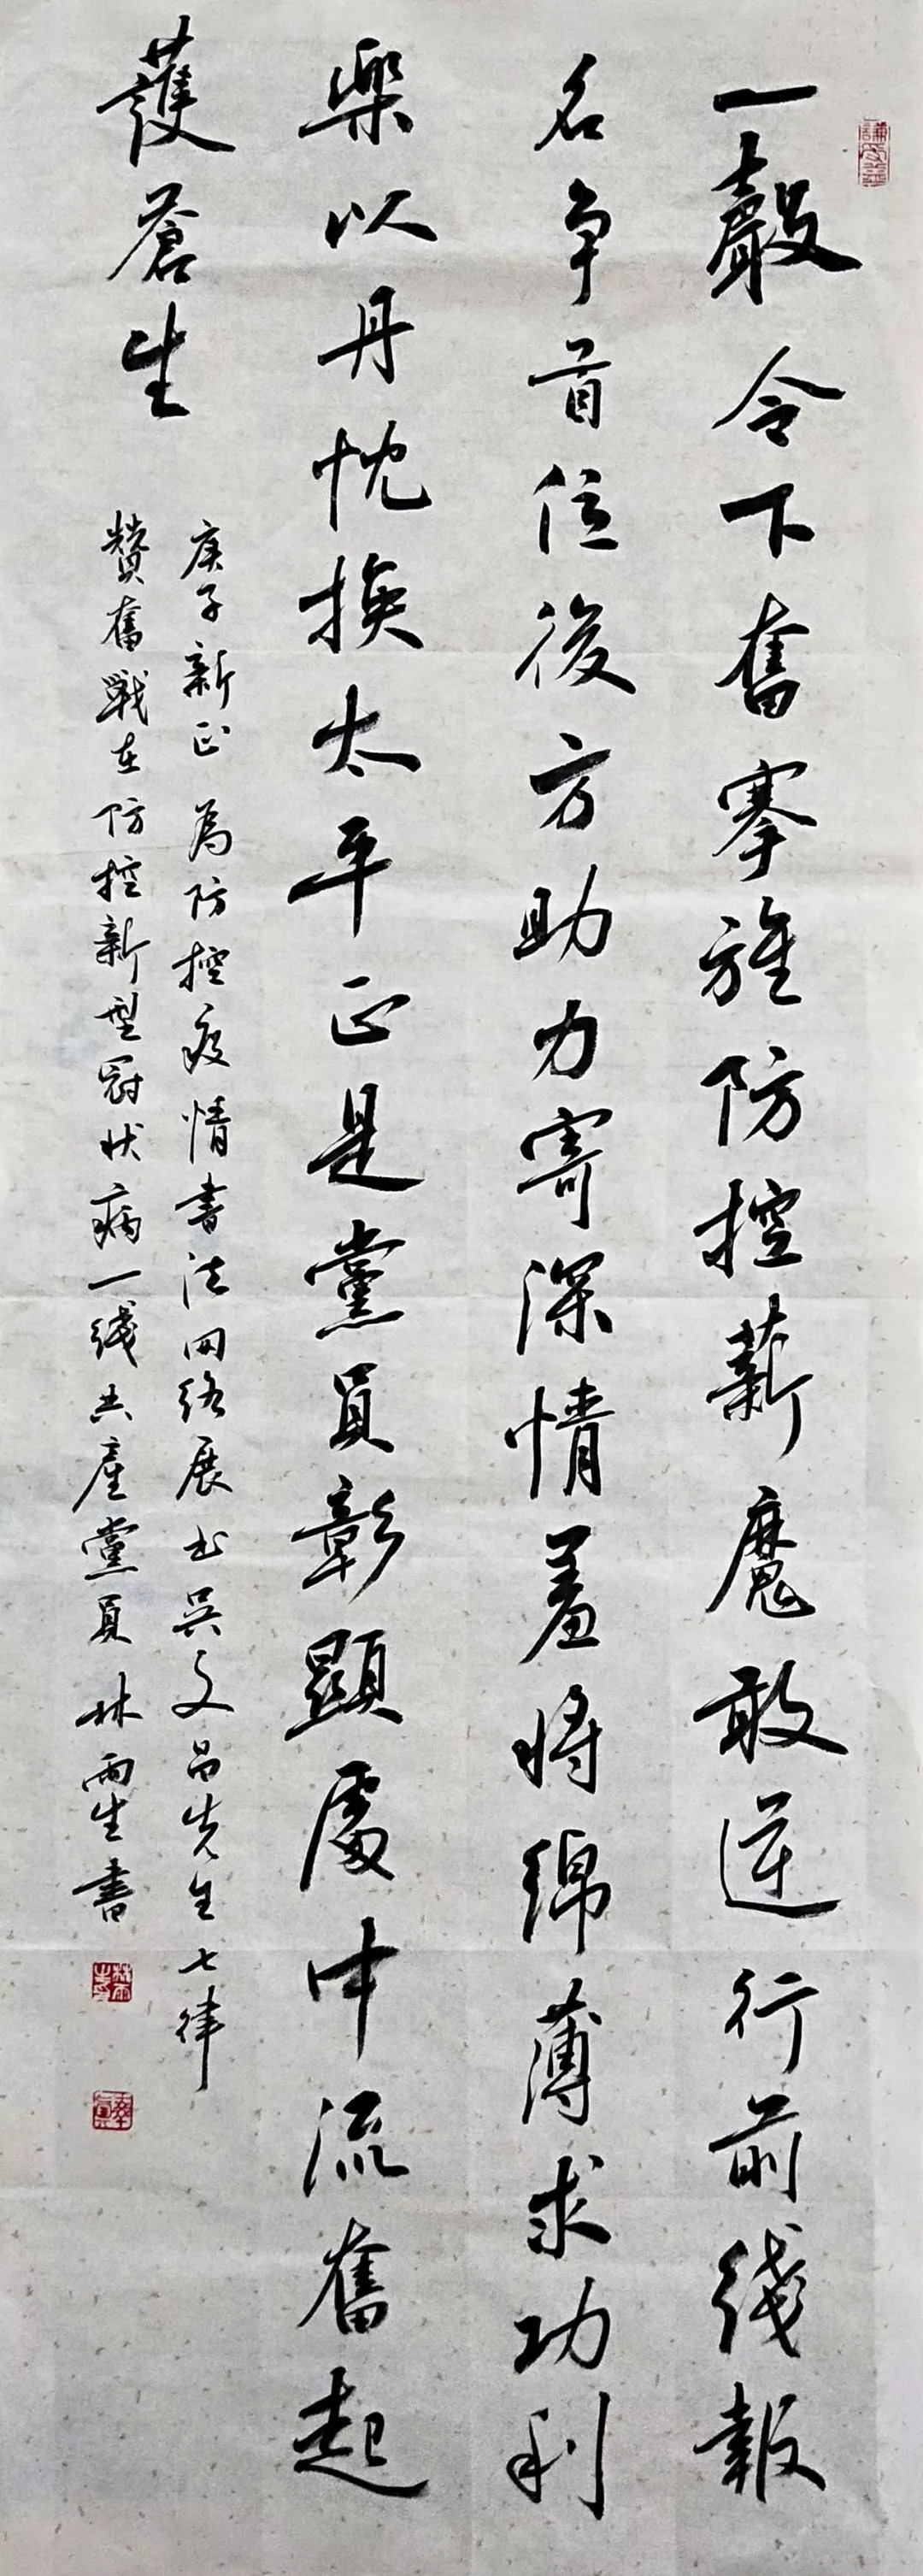 一聲令下奮搴旌防控新魔敢逆行前綫報
名争首位後方助力寄深情羞將綿薄求功利
樂以丹忱换太平正是黨員彰顯處中流奮起
護蒼生
庚子新正為防控疫情書法网络展书吴文昌先生七律
贊奮戰在防控新型冠状病一綫共產黨員林雨生書